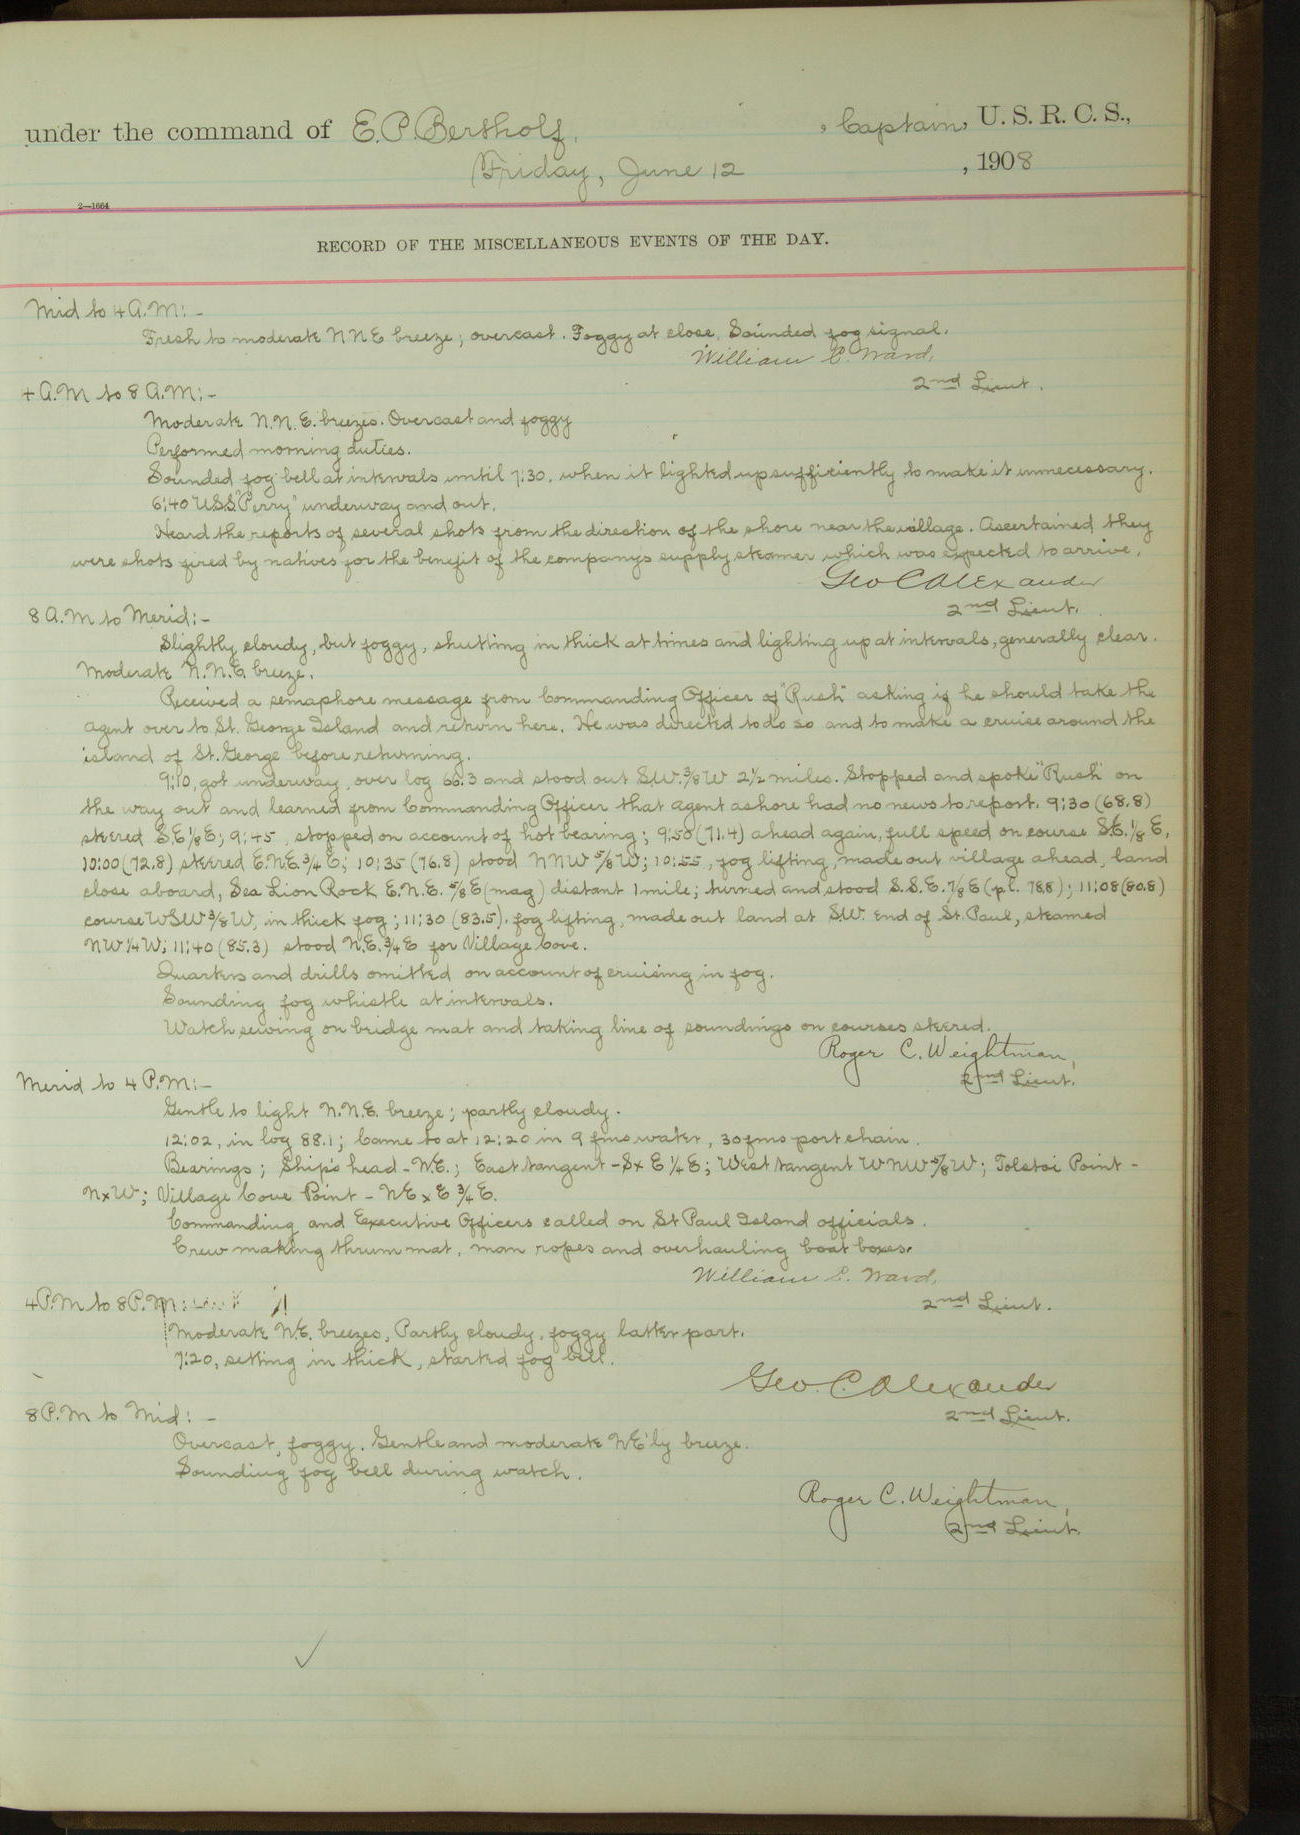 under the command of E.P. Bertholf, , Captain, U. S. R. C. S.,
Friday, June 12 , 1908
2—1664
RECORD OF THE MISCELLANEOUS EVENTS OF THE DAY.
Mid to 4 A.M:-
Fresh to moderate NNE breeze; overcast. Foggy at close. Sounded fog signal.
William C. Ward,
2nd Lieut.
4 A.M to 8 A.M:-
Moderate N.N.E. breezes. Overcast and foggy
Performed morning duties.
Sounded fog bell at intervals until 7:30, when it lighted up sufficiently to make it unnecessary.
6:40 U.S.S. "Perry" underway and out.
Heard the reports of several shots from the direction of the shore near the village. Ascertained they
were shots fired by natives for the benefit of the companys supply steamer which was expected to arrive.
Geo C Alexander
2nd Lieut.
8 A.M to Merid:-
Slightly cloudy, but foggy, shutting in thick at times and lighting up at intervals, generally clear.
Moderate N.N.E. breeze.
Received a semaphore message from Commanding Officer of "Rush" asking if he should take the
agent over to St. George Island and return here. He was directed to do so and to make a cruise around the
island of St. George before returning.
9:10, got underway, over log 66.3 and stood out S.W. 3/8 W 2 1/2 miles. Stopped and spoke "Rush" on
the way out and learned from Commanding Officer that agent ashore had no news to report. 9:30 (68.8)
steered S.E 1/8 E; 9:45, stopped on account of hot bearing; 9:50 (71.4) ahead again, full speed on course S.E. 1/8 E,
10:00 (72.8) steered E.N.E. 3/4 E; 10:35 (76.8) stood NNW 5/8 W; 10:55, fog lifting, made out village ahead, land
close aboard, Sea Lion Rock E.N.E. 5/8 E (mag) distant 1 mile; turned and stood S.S.E. 7/8 E (p.l. 78.8); 11:08 (80.8)
course WSW 3/8 W, in thick fog; 11:30 (83.5). fog lifting, made out land at S.W. End of St. Paul, steamed
NW 1/4 W; 11:40 (85.3) stood N.E. 3/4 E for Village Cove.
Quarters and drills omitted on account of cruising in fog.
Sounding fog whistle at intervals.
Watch sewing on bridge mat and taking line of soundings on courses steered.
Roger C. Weightman,
2nd Lieut.
Merid to 4 P.M:-
Gentle to light N.N.E. breeze; partly cloudy.
12:02, in log 88.1; Came to at 12:20 in 9 fms water, 30 fms port chain.
Bearings; Ship's head - N.E.; East tangent - SxE 1/4 E; West tangent WNW 5/8 W; Tolstoi Point -
NxW; Village Cove Point - NExE 3/4 E.
Commanding and Executive Officers called on St Paul Island officials.
Crew making thrum mat, man ropes and overhauling boat boxes.
William C. Ward,
2nd Lieut.
4 P.M to 8 P.M:
Moderate N.E. breezes, Partly cloudy, foggy latter part.
7:20, setting in thick, started fog bell.
Geo. C. Alexander
2nd Lieut.
8 P.M to Mid:-
Overcast, foggy. Gentle and moderate NE'ly breeze.
Sounding fog bell during watch.
Roger C. Weightman,
2nd Lieut.